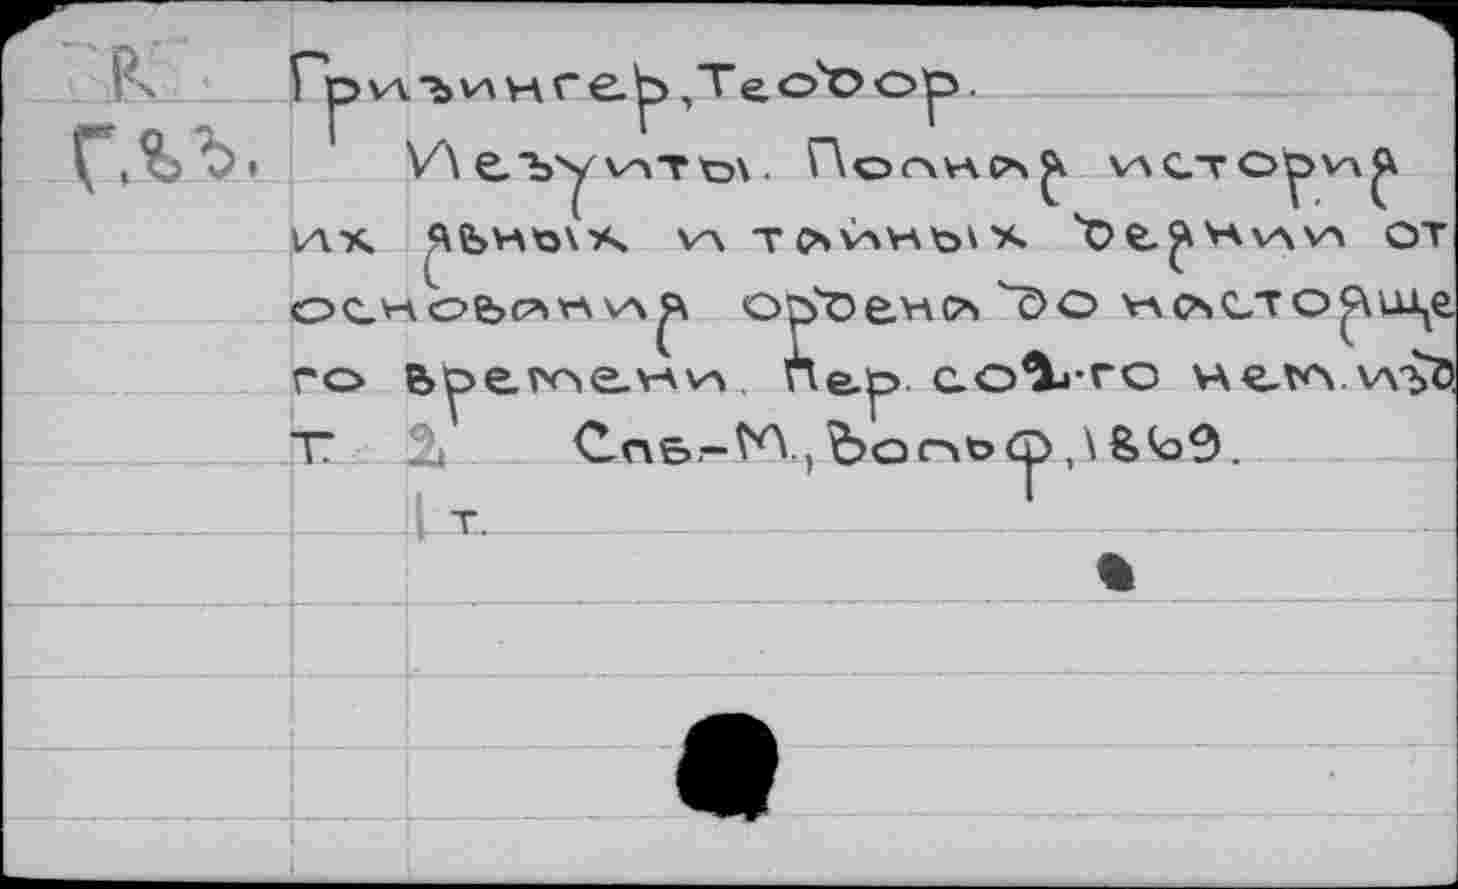 К
Г.83.
Гризингер,Теодор.
Иезуиты. Полная история
их явных и тайных деяний от
основания ордена до настояще
го времени. Пер. со2-го нем.изд
Т. 2, Спб.-М.,Вольф,1869.
1 т.